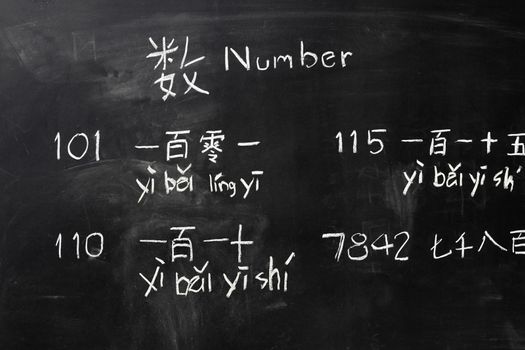 数 Number
101 一百零一
yì bǎi líng yī
110 一百一十
yì bǎi yī shí
115 一百一十五
yì bǎi yī shí
7842 七千八百